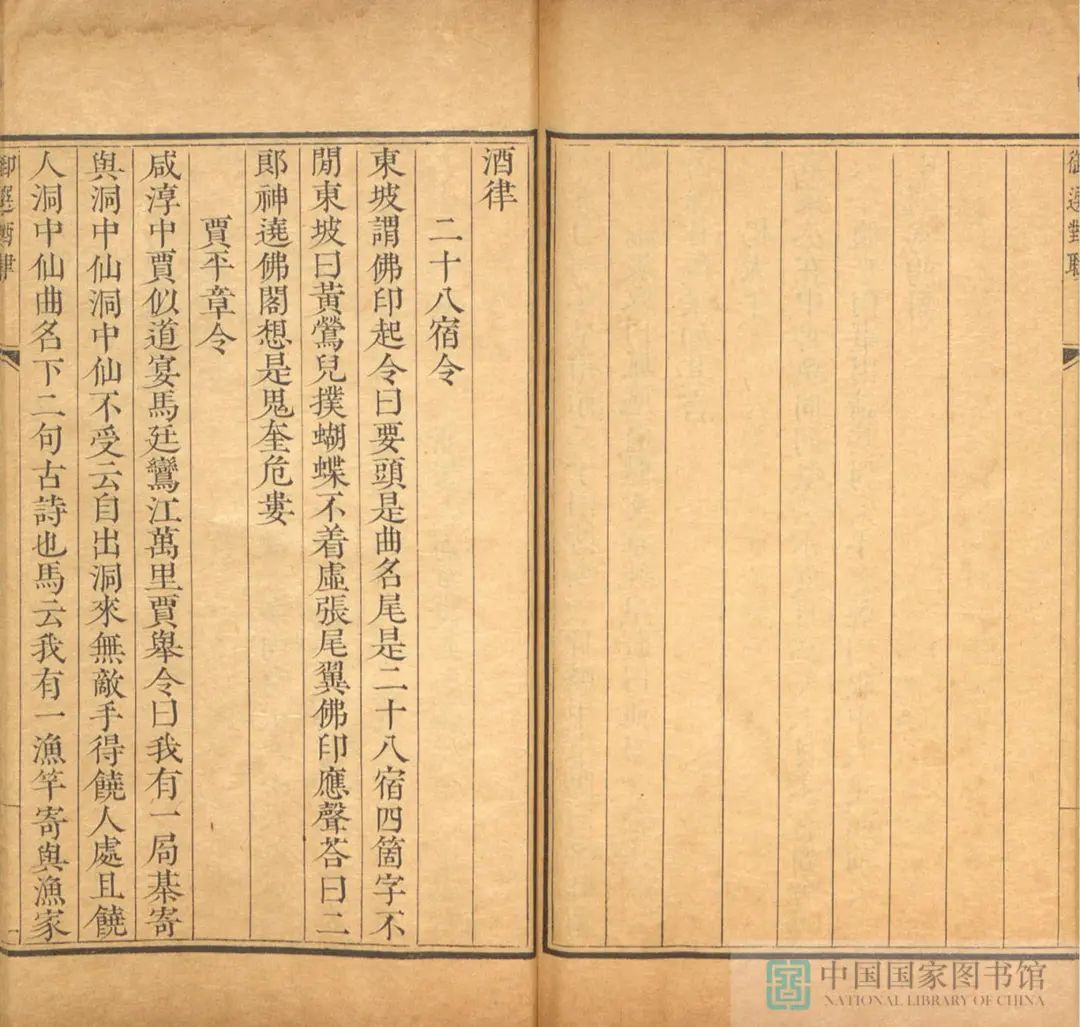 御選對聯
酒律
二十八宿令
東坡謂佛印起令曰要頭是曲名尾是二十八宿四箇字不
閒東坡曰黃鶯兒撲蝴蝶不着虛張尾翼佛印應聲荅曰二
郞神遶佛閣想是鬼奎危婁
賈平章令
咸淳中賈似道宴馬廷鸞江萬里賈舉令曰我有一局棊寄
與洞中仙洞中仙不受云自出洞來無敵手得饒人處且饒
人洞中仙曲名下二句古詩也馬云我有一漁竿寄與漁家
御選酒律
一
中国国家图书馆
NATIONAL LIBRARY OF CHINA